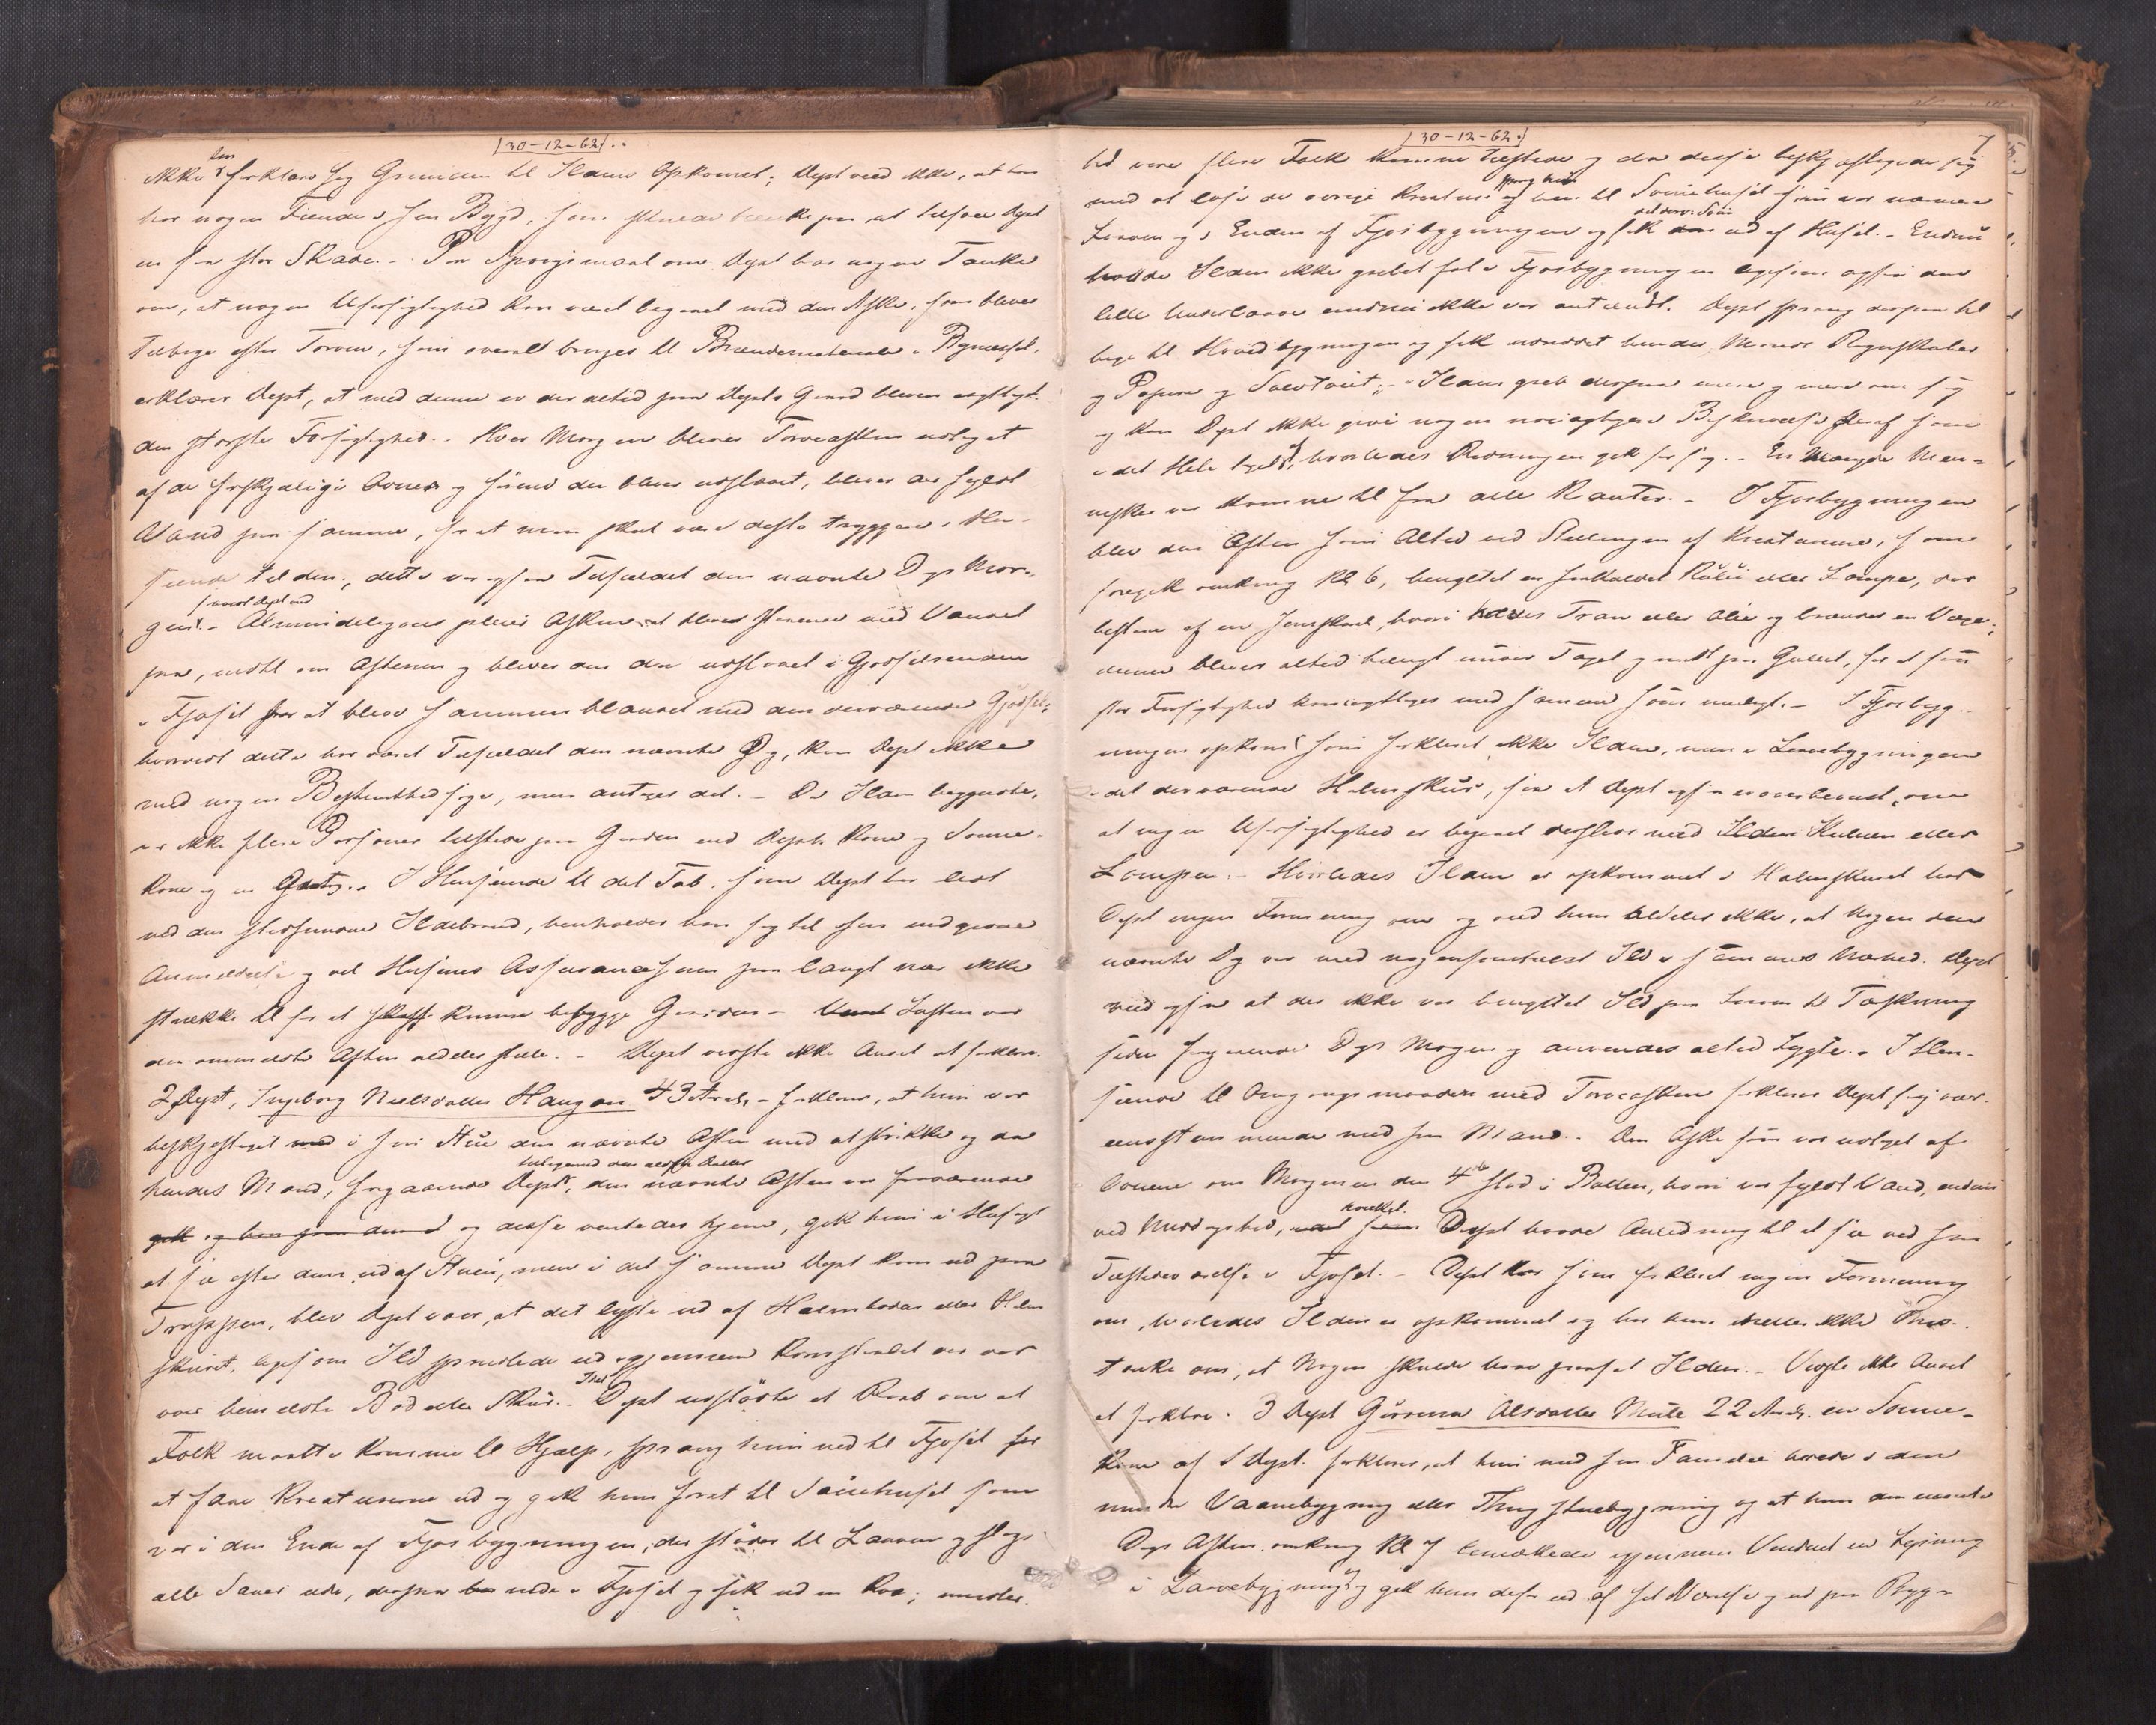 30-12-62
ikke kan forklare sig Grunden til Ildens Opkomst; Dept ved ikke, at han
har nogen Fiende i sin Bygd, som skulde tænke paa at tilføie Dept
en saa stor Skade. - Paa Spørgsmaal om Dept har nogen Tanke
om, at nogen Uforsigtighed kan været begaaet med den Aske, som bliver
Tilbage efter Torven, som overalt bruges til Brændemateriale i Bygdén,
erklærer Dept, at med denne er der altid paa Depts Gaard bleven iagttaget
den største Forsigtighed. - Hver Morgen bliver Torvasken udtaget
af de forskjellige Ovner og førend den bliver udslaaet, bliver der fyldt
Vand paa samme, for at man skal være desto tryggere i Hen-
seende til den; dette var ogsaa Tilfældet den nævnte Dags Mor-
gen. - saavidt Dept ved Almindeligvis pleier Asken at blive staaende med Vandet
paa, indtil om Aftenen og bliver den da udslaaet i Gjødselrenden
i Fjøset for at blive sammenblandet med den derværende Gjødsel;
hvorvidt dette har været Tilfældet den nævnte Dag, kan Dept ikke
med nogen Bestemthed sige, men antager det. - Da Ilden begyndte,
var ikke flere Personer tilstede paa Gaarden end Depts Kone og Sønne-
kone og en Gut. - I Henseende til det Tab, som Dept har lidt
ved den stedfundne Ildebrand, henholder han sig til sin indgivne
Anmeldelse og vil Husenes Assurancesum paa langt nær ikke
strække til for at kunne bebygge Gaarden. - Luften var
den ommeldte Aften aldeles stille. - Dept vidste ikke Andet at forklare.
2 Dept, Ingeborg Nielsdatter Haugan 43 Aar, - forklarer, at hun var
beskjæftiget i sin Stue den nævnte Aften med at strikke og da
hendes Mand, foregaaende Dept, tilligemed den ældste Datter den nævnte Aften var fraværende
og disse ventedes hjem, gik hun i Husets
at see efter dem ud af Stuen, men i det samme Dept kom ud paa
Trappen, blev Dept vaer, at det lyste ud af Halmboden eller Halm
skuret, ligesom Ild sprudlede ud igjennem
var bemeldte Bod eller Skur. - Idet Dept udstødte et Raab om at
Folk maatte komme til Hjælp, sprang hun ned til Fjøset for
at faae Kreaturerne ud og gik hun først til Sauehuset som
var i den Ende af Fjøsbygningen, der støder til Laaven og slap
alle Sauer ude, derpaa inde i Fjøset og fik ud en Ko; imidler-
30-12-62
7
tid vare flere Folk komne tilstede og da disse beskjæftigede sig
med at løse de øvrige Kreature sprang hun og hen til Svinehuset som var nærmere
Laaven og i Enden af Fjøsbygningen og fik det derv. Sviin ud af Huset. - Endnu
havde Ilden ikke grebet fat i Fjøsbygningen ligesom ogsaa den
lille Underlaave endnu ikke var antændt. Dept sprang derpaa til
bage til Hovedbygningen og fik reddet hendes Mands Regnskaber
og Papirer og Sølvtøiet; - Ilden greb derpaa mere og mere om sig
og kan Dept ikke give nogen nøiagtigere Beskrivelse deraf som
i det Hele taget, hvorledes Redningen gik for sig. - En Mængde Men-
nesker var komne til fra alle Kanter. - I Fjøsbygningen
blev den Aften som Altid ved Stellingen af Kreaturene, som
foregik omkring Kl 6, benyttet en saakaldet Kule eller Lampe, der
bestaar af en Jernskaal, hvori haves Tran eller Olie og brændes en Væge;
denne bliver altid hængt under Taget og midt paa Gulvet, for at saa
stor Forsigtighed kan iagttages med samme som muligt. - I Fjøsbyg-
ningen opkom som forklaret ikke Ilden, men i Laavebygningen
i det derværende Halmskur, saa at Dept ogsaa er overbevist om
at ingen Uforsigtighed er begaaet desfor med Kulen eller
Lampen. - Hvorledes Ilden er opkommet i Halmskuret har
Dept ingen Formening om og ved hun aldeles ikke, at Nogen den
nævnte Dag var med nogensomhelst Ild i sammes Nærhed. Dept
veed ogsaa at der ikke var benyttet Ild paa Laaven til Tærskning
siden foregaaende Dags Morgen og anvendes altid Lygte. - I Hen-
seende til Omgangsmaaden med Torvasken forklarer Dept sig over-
eensstemmende med sin Mand. - Den Aske som var udtaget af
Ovnene om Morgenen den 4de stod i Bøtten, hvori var fyldt Vand, endnu
ved Middagstid, hvilket Dept havde Anledning til at see ved sin
Tilstedeværelse i Fjøset. - Dept har som forklaret ingen Formening
om, hvorledes Ilden er opkommet og har hun heller ikke Mis-
tanke om, at Nogen skulde have paasat Ilden. - Vidste ikke Andet
at forklare. 3 Dept Gurina Olsdatter Mule 22 Aar, en Sønne-
Kone af 1 Dept. forklarer, at hun med sin Familie boede i den
mindre Vaanebygning eller Borgstuebygning og at hun den nævnte
Dags Aften omkring Kl 7 bemærkede igjennem Vinduet en Lysning
i Laavebygningen og gik hun derfor ud af sit Værelse og ud paa Byg-